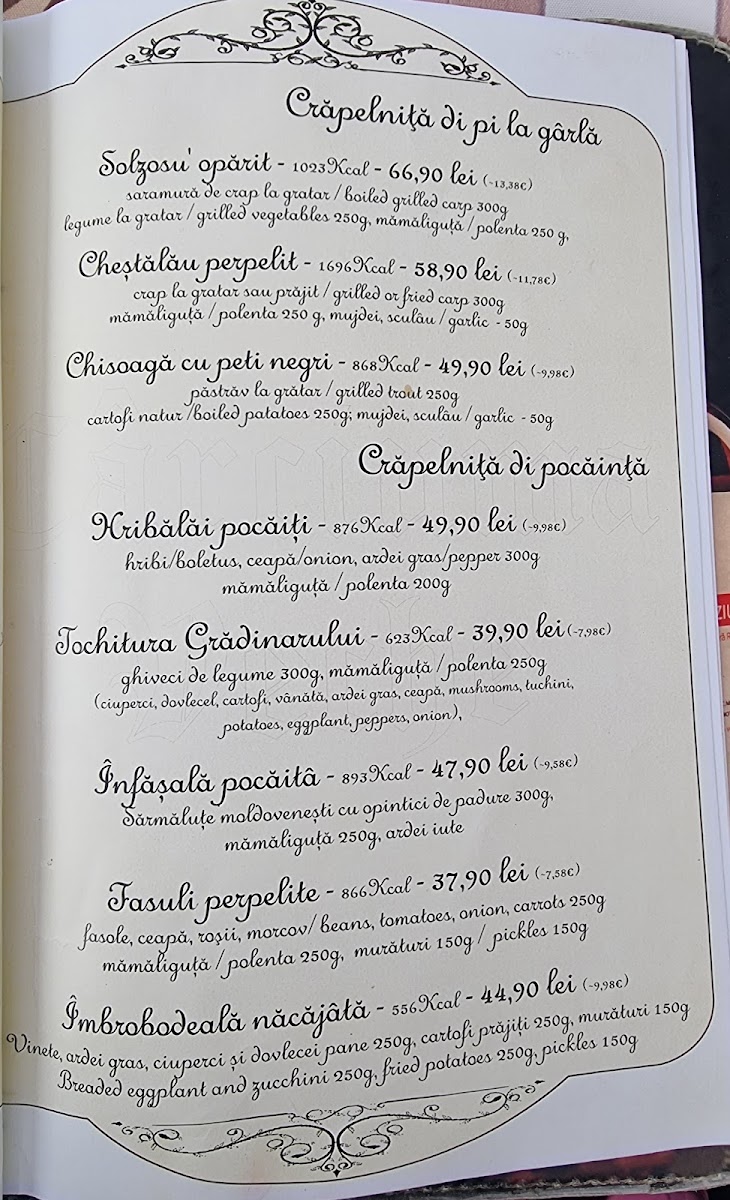 Crăpelniţă di pi la gârlă
Solzosu' opărit - 1023Kcal - 66,90 lei (~13,38€)
saramură de crap la gratar / boiled grilled carp 300g
legume la gratar / grilled vegetables 250g, mămăliguţă / polenta 250 g,
Cheştălău perpelit - 1696Kcal - 58,90 lei (~11,78€)
crap la gratar sau prăjit / grilled or fried carp 300g
mămăliguţă / polenta 250 g, mujdei, sculău / garlic - 50g
Chisoagă cu peti negri - 868Kcal - 49,90 lei (~9,98€)
păstrăv la grătar / grilled trout 250g
cartofi natur /boiled patatoes 250g; mujdei, sculău / garlic - 50g
Crăpelniţă di pocăinţă
Hribălăi pocăiţi - 876Kcal - 49,90 lei (~9,98€)
hribi/boletus, ceapă/onion, ardei gras/pepper 300g
mămăliguţă / polenta 200g
Tochitura Grădinarului - 623Kcal - 39,90 lei (~7,98€)
ghiveci de legume 300g, mămăliguţă / polenta 250g
(ciuperci, dovlecel, cartofi, vânătă, ardei gras, ceapă, mushrooms, tuchini,
potatoes, eggplant, peppers, onion),
Înfăşală pocăită - 893Kcal - 47,90 lei (~9,58€)
Sărmăluţe moldoveneşti cu opintici de padure 300g,
mămăliguţă 250g, ardei iute
Fasuli perpelite - 866Kcal - 37,90 lei (~7,58€)
fasole, ceapă, roşii, morcov/ beans, tomatoes, onion, carrots 250g
mămăliguţă / polenta 250g, murături 150g / pickles 150g
Îmbrobodeală năcăjâtă - 556Kcal - 44,90 lei (~9,98€)
Vinete, ardei gras, ciuperci şi dovlecei pane 250g, cartofi prăjiţi 250g, murături 150g
Breaded eggplant and zucchini 250g, fried potatoes 250g, pickles 150g